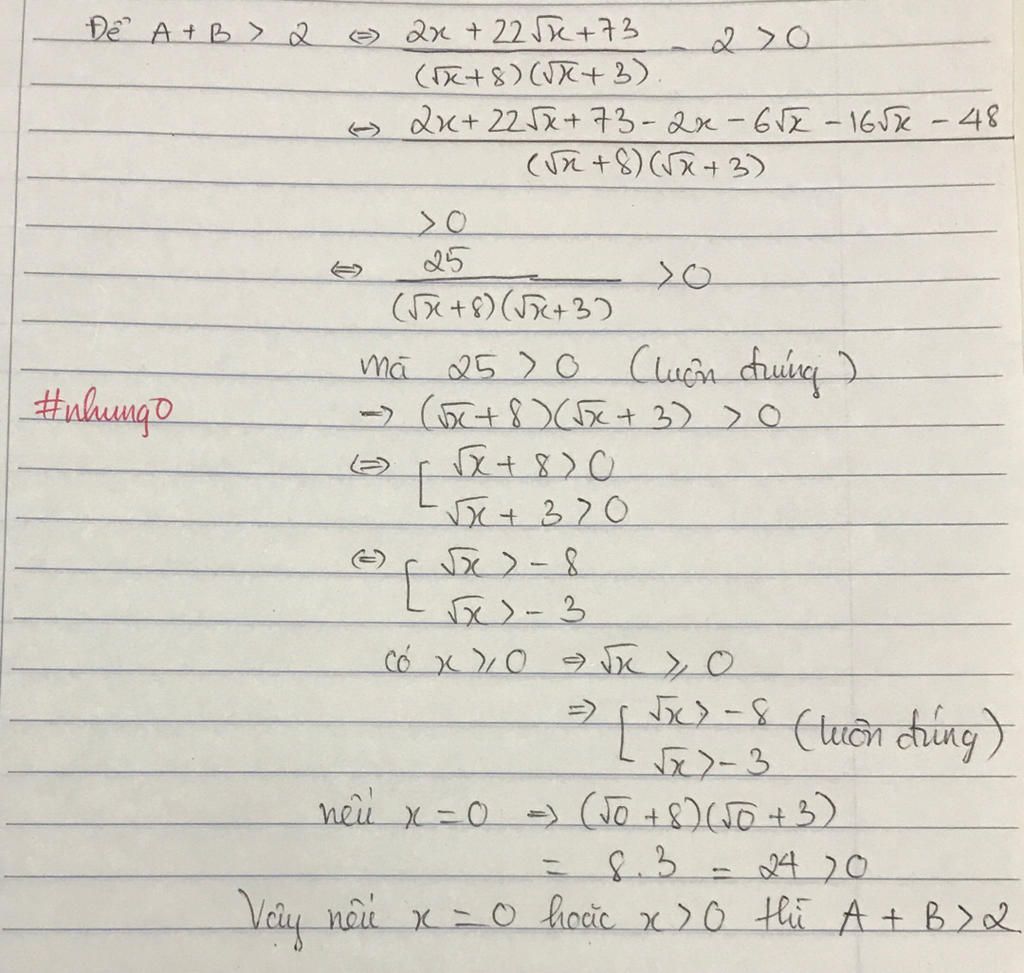 Để A + B > 2 ⇔ (2x + 22√x + 73)/((√x + 8)(√x + 3)) - 2 > 0
⇔ (2x + 22√x + 73 - 2x - 6√x - 16√x - 48)/((√x + 8)(√x + 3))
> 0
⇔ 25/((√x + 8)(√x + 3)) > 0
mà 25 > 0 (luôn đúng)
#nhung0 → (√x + 8)(√x + 3) > 0
⇔ [ √x + 8 > 0
√x + 3 > 0
⇔ [ √x > - 8
√x > - 3
có x ⩾ 0 ⇒ √x ⩾ 0
⇒ [ √x > - 8 (luôn đúng)
√x > - 3
nếu x = 0 ⇒ (√0 + 8)(√0 + 3)
= 8 . 3 = 24 > 0
Vậy nếu x = 0 hoặc x > 0 thì A + B > 2